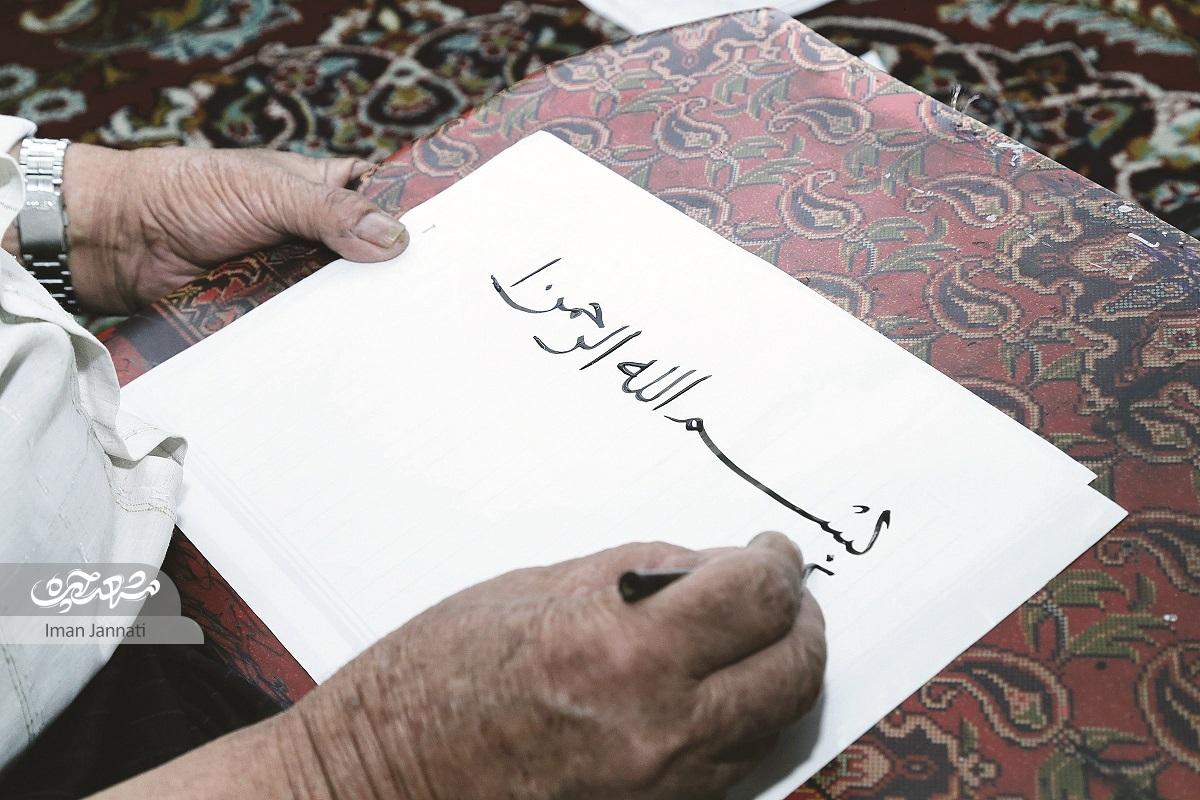 بسم الله الرحمن ا
Iman Jannati